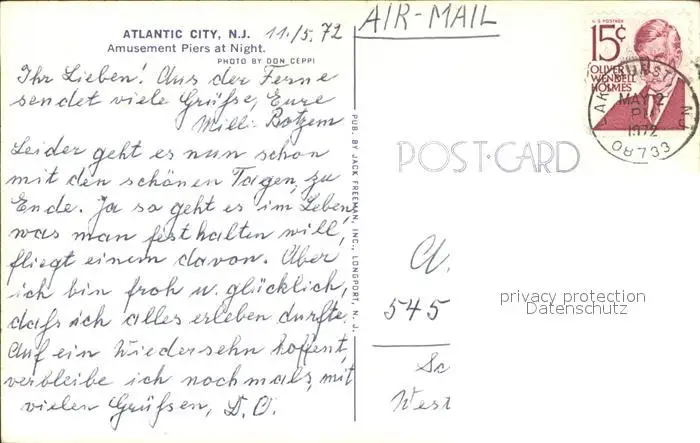 ATLANTIC CITY, N.J. 11./5. 72
Amusement Piers at Night.
PHOTO BY DON CEPPI
Ihr Lieben! Aus der Ferne
sendet viele Grüße, Eure
Milli
Leider geht es nun schon
mit den schönen Tagen, zu
Ende. Ja so geht es im Leben,
was man festhalten will,
fliegt einem davon. Aber
ich bin froh u. glücklich,
daß ich alles erleben durfte.
Auf ein Wiedersehn hoffent,
verbleibe ich nochmals, mit
vielen Grüßen, D. O.
PUB. BY JACK FREEMAN, INC., LONGPORT, N. J.
AIR-MAIL
U.S. POSTAGE
15¢
OLIVER
WENDELL
HOLMES
LAKEHURST N.J.
MAY 12
PM
1972
08733
POST-CARD
545
West
privacy protection
Datenschutz